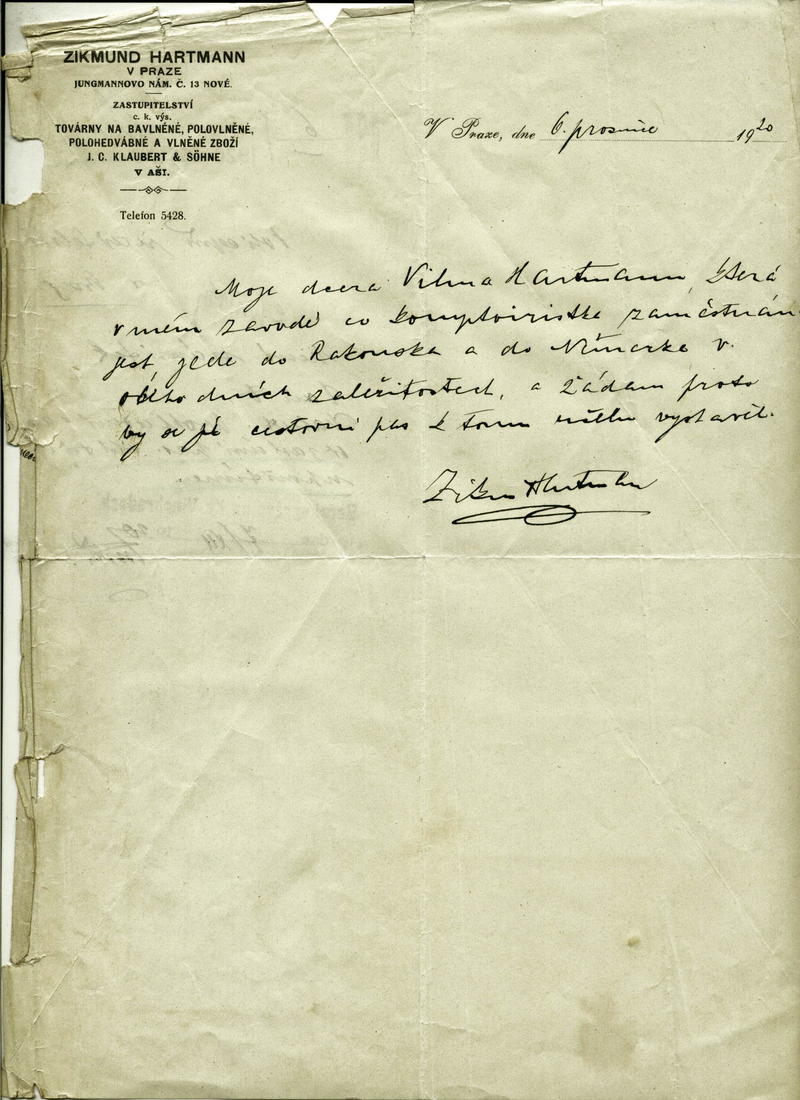 ZIKMUND HARTMANN
V PRAZE
JUNGMANNOVO NÁM. Č. 13 NOVÉ.
ZASTUPITELSTVÍ
c. k. výs.
TOVÁRNY NA BAVLNĚNÉ, POLOVLNĚNÉ,
POLOHEDVÁBNÉ A VLNĚNÉ ZBOŽÍ
J. C. KLAUBERT & SÖHNE
V AŠI.
Telefon 5428.
V Praze, dne 6. prosince 1920
Moje dcera Vilma Hartmann, která
v mém zavodě co komptoiristka zaměstnán
jest, jede do Rakouska a do Německa v
obchodních zaležitostech, a žádam proto
by se jí cestovní pas k tomu účelu vystavil.